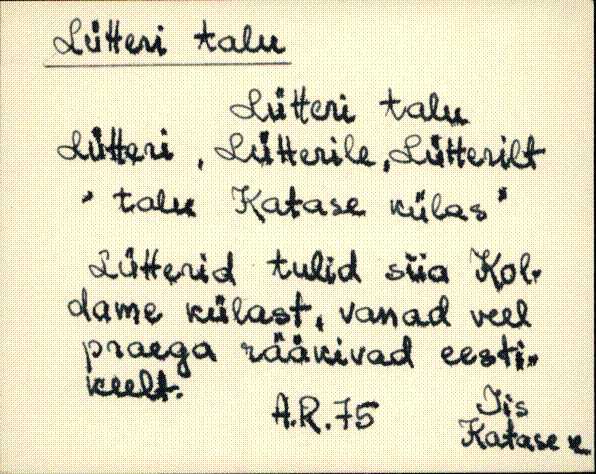 Lütteri talu
Lütteri talu
Lütteri, Lütterile, Lütterilt
" talu Katase külas "
Lütterid tulid siia Kol-
dame külast, vanad veel
praega rääkivad eesti-
keelt.
A.R. 75
Iis
Katase k.